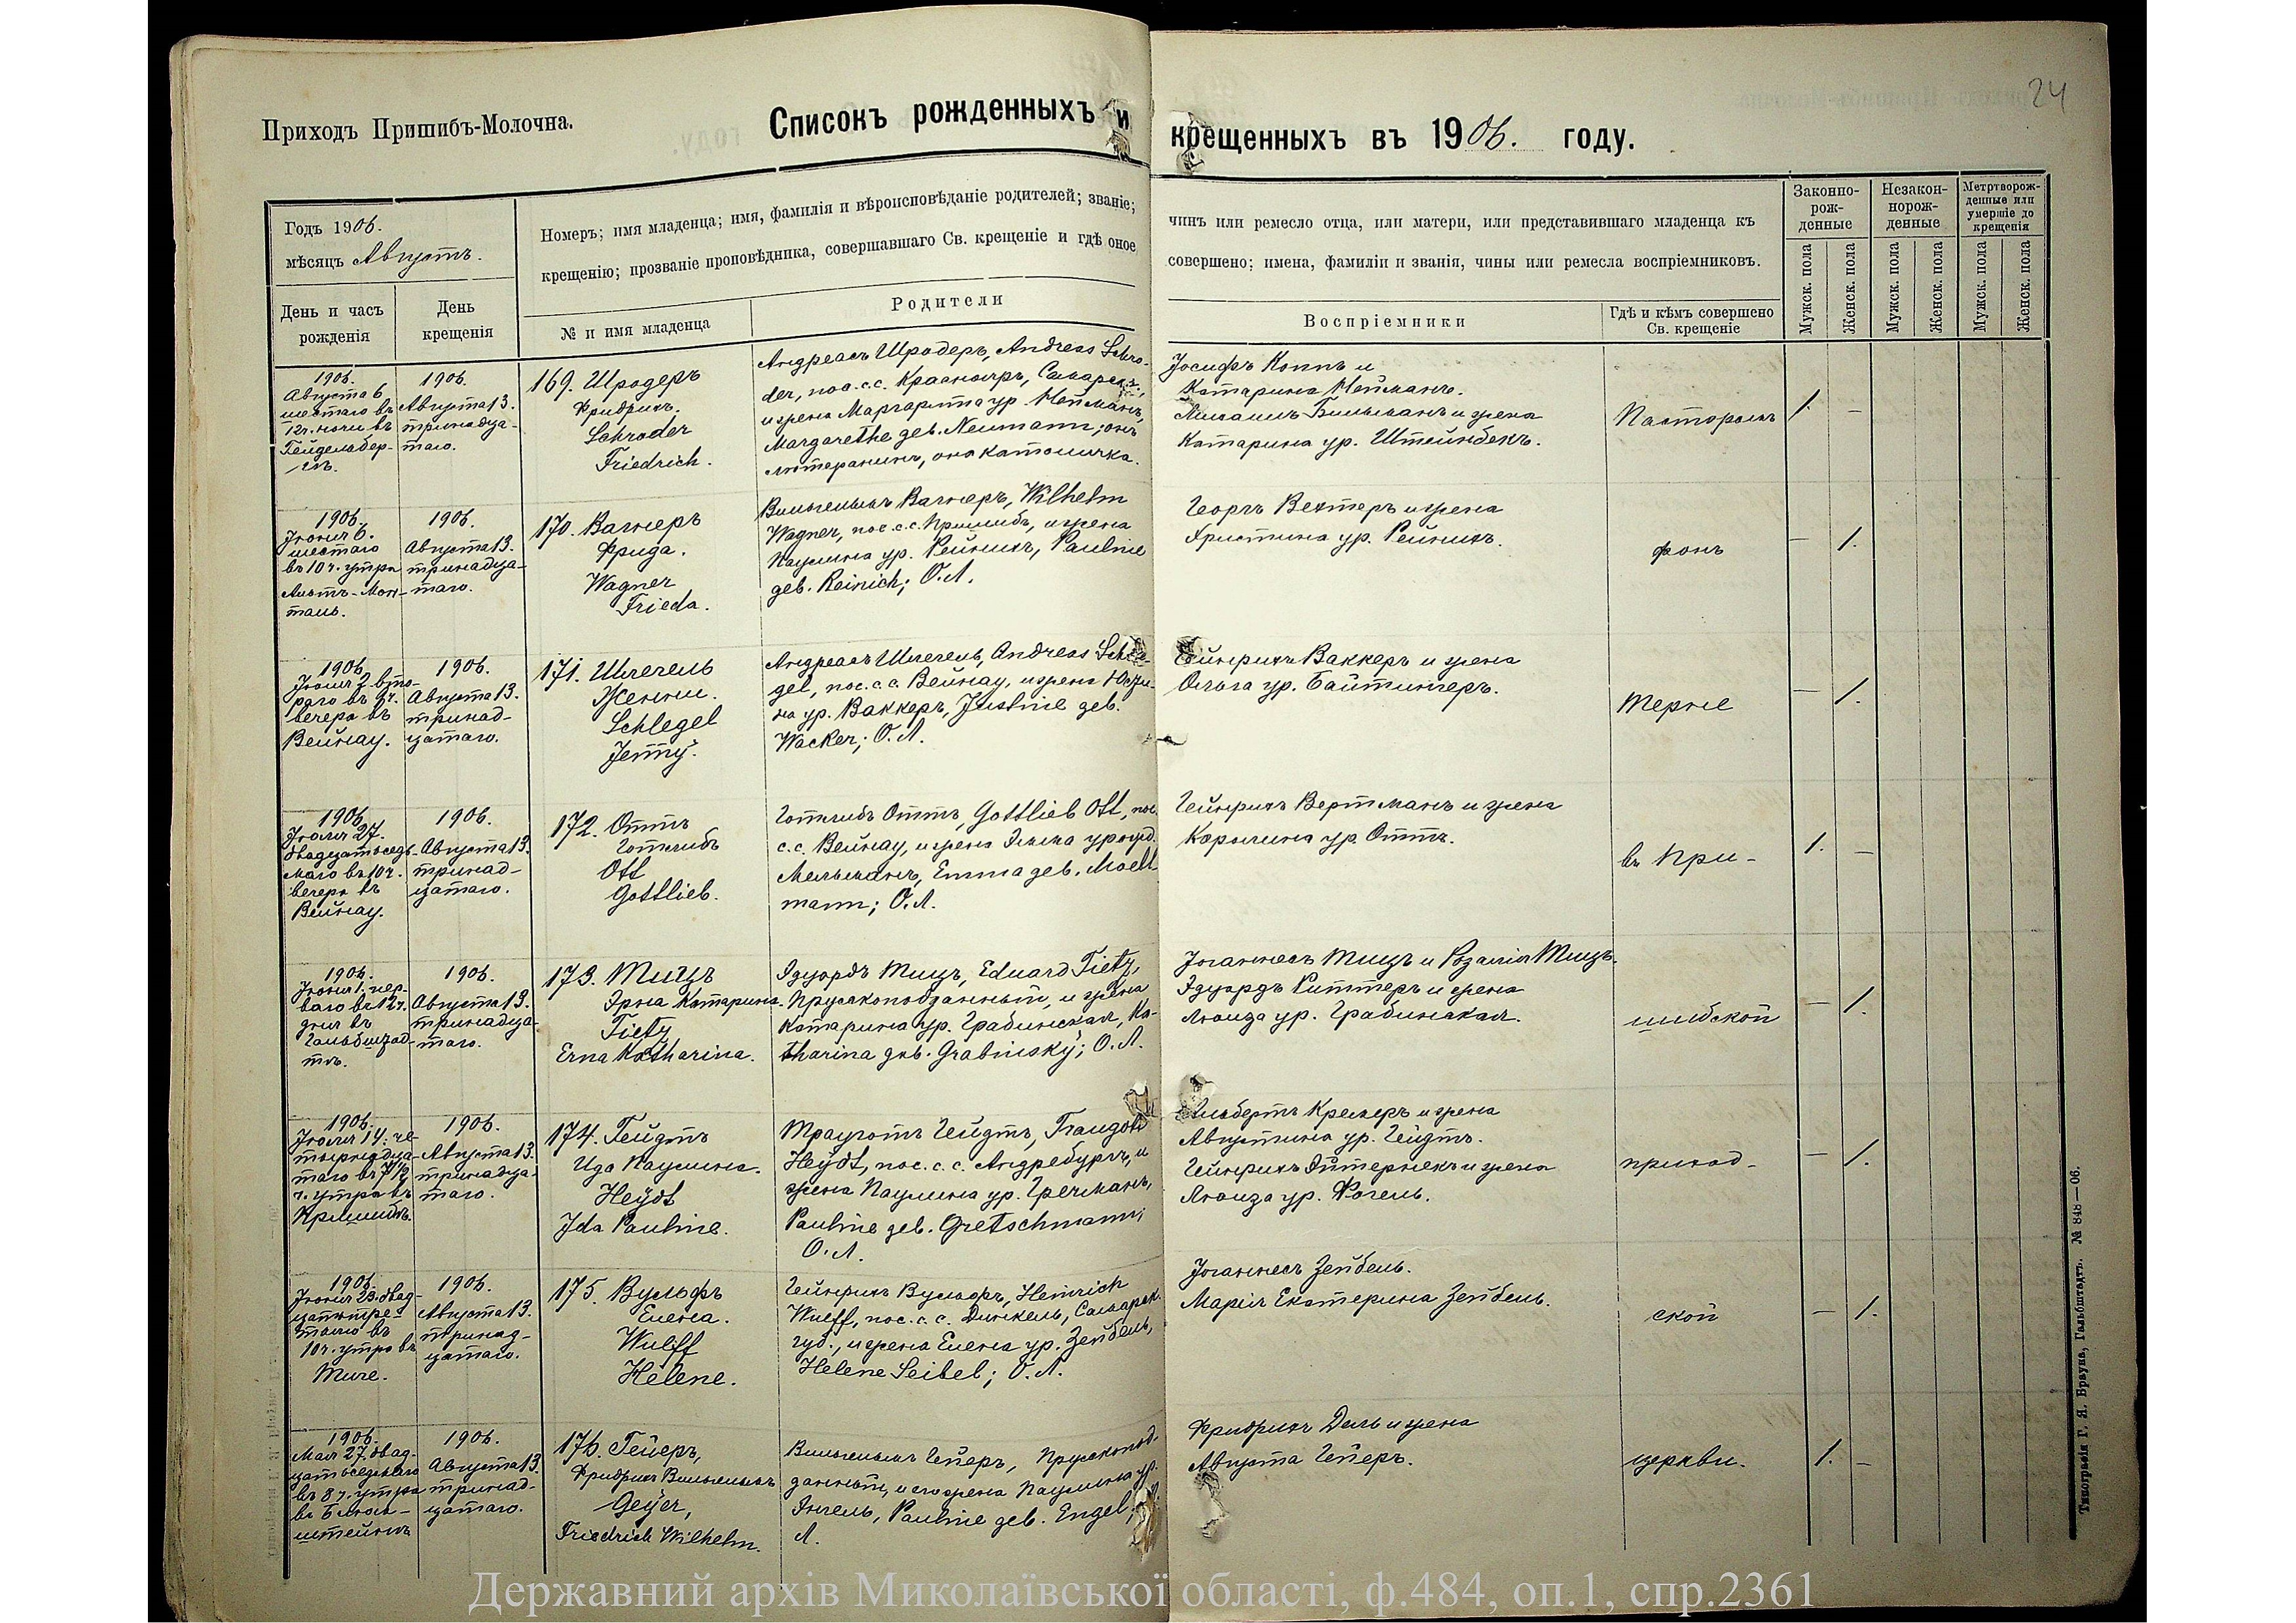 24
Приходъ Пришибъ-Молочна.
Списокъ рожденныхъ и крещенныхъ въ 1906. году.
Годъ 1906.
мѣсяцъ Августъ.
День и часъ рожденія
День крещенія
Номеръ; имя младенца; имя, фамилія и вѣроисповѣданіе родителей; званіе;
крещенію; прозваніе проповѣдника, совершавшаго Св. крещеніе и гдѣ оное
чинъ или ремесло отца, или матери, или представившаго младенца къ
совершено; имена, фамиліи и званія, чины или ремесла воспріемниковъ.
№ и имя младенца
Родители
Воспріемники
Гдѣ и кѣмъ совершено
Св. крещеніе
Законно-
рож-
денные
Незакон-
норож-
денные
Метртворож-
денные или
умершіе до
крещенія
Мужск. пола
Женск. пола
Мужск. пола
Женск. пола
Мужск. пола
Женск. пола
1906.
Августа 6
шестаго въ
12ч. ночи въ
Гейдельбер-
гѣ.
1906.
Августа 13.
тринадца-
таго.
169. Шродеръ
Фридрихъ.
Schroder
Friedrich.
Андреасъ Шродеръ, Andreas Schro-
der, пос. с.с. Краснояръ, Самарск.
и жена Маргарита ур. Нейманъ,
Margarethe geb. Neumann; онъ
лютеранинъ, она католичка.
Іосифъ Коппъ и
Катарина Нейманъ.
Михаилъ Бильманъ и жена
Катарина ур. Штейнбекъ.
Пасторомъ
1. –
1906.
Іюня 6.
шестаго
въ 10 ч. утра
Альтъ-Мон-
таль.
1906.
Августа 13.
тринадца-
таго.
170. Вагнеръ
Фрида.
Wagner
Frieda.
Вильгельмъ Вагнеръ, Wilhelm
Wagner, пос. с.с. Пришибъ, и жена
Паулина ур. Рейнихъ, Pauline
geb. Reinich; О.Л.
Георгъ Вехтеръ и жена
Христина ур. Рейнихъ.
фонъ
– 1.
1906
Іюля 2 вто-
раго въ 9ч.
вечера въ
Вейнау.
1906.
Августа 13.
тринад-
цатаго.
171. Шлегель
Женни.
Schlegel
Jenny.
Андреасъ Шлегель, Andreas Schle-
gel, пос. с.с. Вейнау, и жена Юсти-
на ур. Ваккеръ, Justine geb.
Wacker; О.Л.
Гейнрихъ Ваккеръ и жена
Ольга ур. Байтингеръ.
Терне
– 1.
1906
Іюля 27.
двадцатьседь-
маго въ 10ч.
вечера въ
Вейнау.
1906.
Августа 13.
тринад-
цатаго.
172. Оттъ
Готлибъ
Ott
Gottlieb.
Готлибъ Оттъ, Gottlieb Ott, пос.
с.с. Вейнау, и жена Эмма урожд.
Мельманъ, Emma geb. Moell-
mann; О.Л.
Гейнрихъ Вертманъ и жена
Каролина ур. Оттъ.
въ При-
1. –
1906.
Іюня 1. пер-
ваго въ 12ч.
дня въ
Гальбштад-
тѣ.
1906.
Августа 13.
тринадца-
таго.
173. Тицъ
Эрна Катарина.
Tietz
Erna Katharina.
Эдуардъ Тицъ, Eduard Tietz,
Прусскоподданный, и жена
Катарина ур. Грабинская, Ka-
tharina geb. Grabinsky; О.Л.
Іоганнесъ Тицъ и Розалія Тицъ.
Эдуардъ Риттеръ и жена
Луиза ур. Грабинская.
шибской
– 1.
1906.
Іюля 14. че-
тырнадца-
таго въ 7 1/2
ч. утра въ
Пришибъ.
1906.
Августа 13.
тринадца-
таго.
174. Гейдтъ
Ида Паулина.
Heydt
Ida Pauline.
Трауготъ Гейдтъ, Traugott
Heydt, пос. с.с. Андребургъ, и
жена Паулина ур. Гречманъ,
Pauline geb. Gretschmann;
О.Л.
Альбертъ Кремеръ и жена
Августина ур. Гейдтъ.
Гейнрихъ Эйтернекъ и жена
Луиза ур. Фогель.
приход-
– 1.
1906.
Іюня 23. двад-
цатьтре-
тьяго въ
10ч. утра въ
Тиге.
1906.
Августа 13.
тринад-
цатаго.
175. Вульфъ
Елена.
Wulff
Helene.
Гейнрихъ Вульфъ, Heinrich
Wulff, пос. с.с. Динкель, Самарск.
губ., и жена Елена ур. Зейбель,
Helene Seibel; О.Л.
Іоганнесъ Зейбель.
Марія Екатерина Зейбель.
ской
– 1.
1906.
Мая 27. двад-
цатьседьмаго
въ 8 ч. утра
въ Блюм-
штейнѣ
1906.
Августа 13.
тринад-
цатаго.
176. Гейеръ,
Фридрихъ Вильгельмъ
Geyer,
Friedrich Wilhelm.
Вильгельмъ Гейеръ, Прусскопод-
данный, и его жена Паулина ур.
Энгель, Pauline geb. Engel;
Л.
Фридрихъ Даль и жена
Августа Гейеръ.
церкви.
1. –
Типографія Г. Я. Брауна, Гальбштадтъ. № 848—06.
Державний архів Миколаївської області, ф.484, оп.1, спр.2361